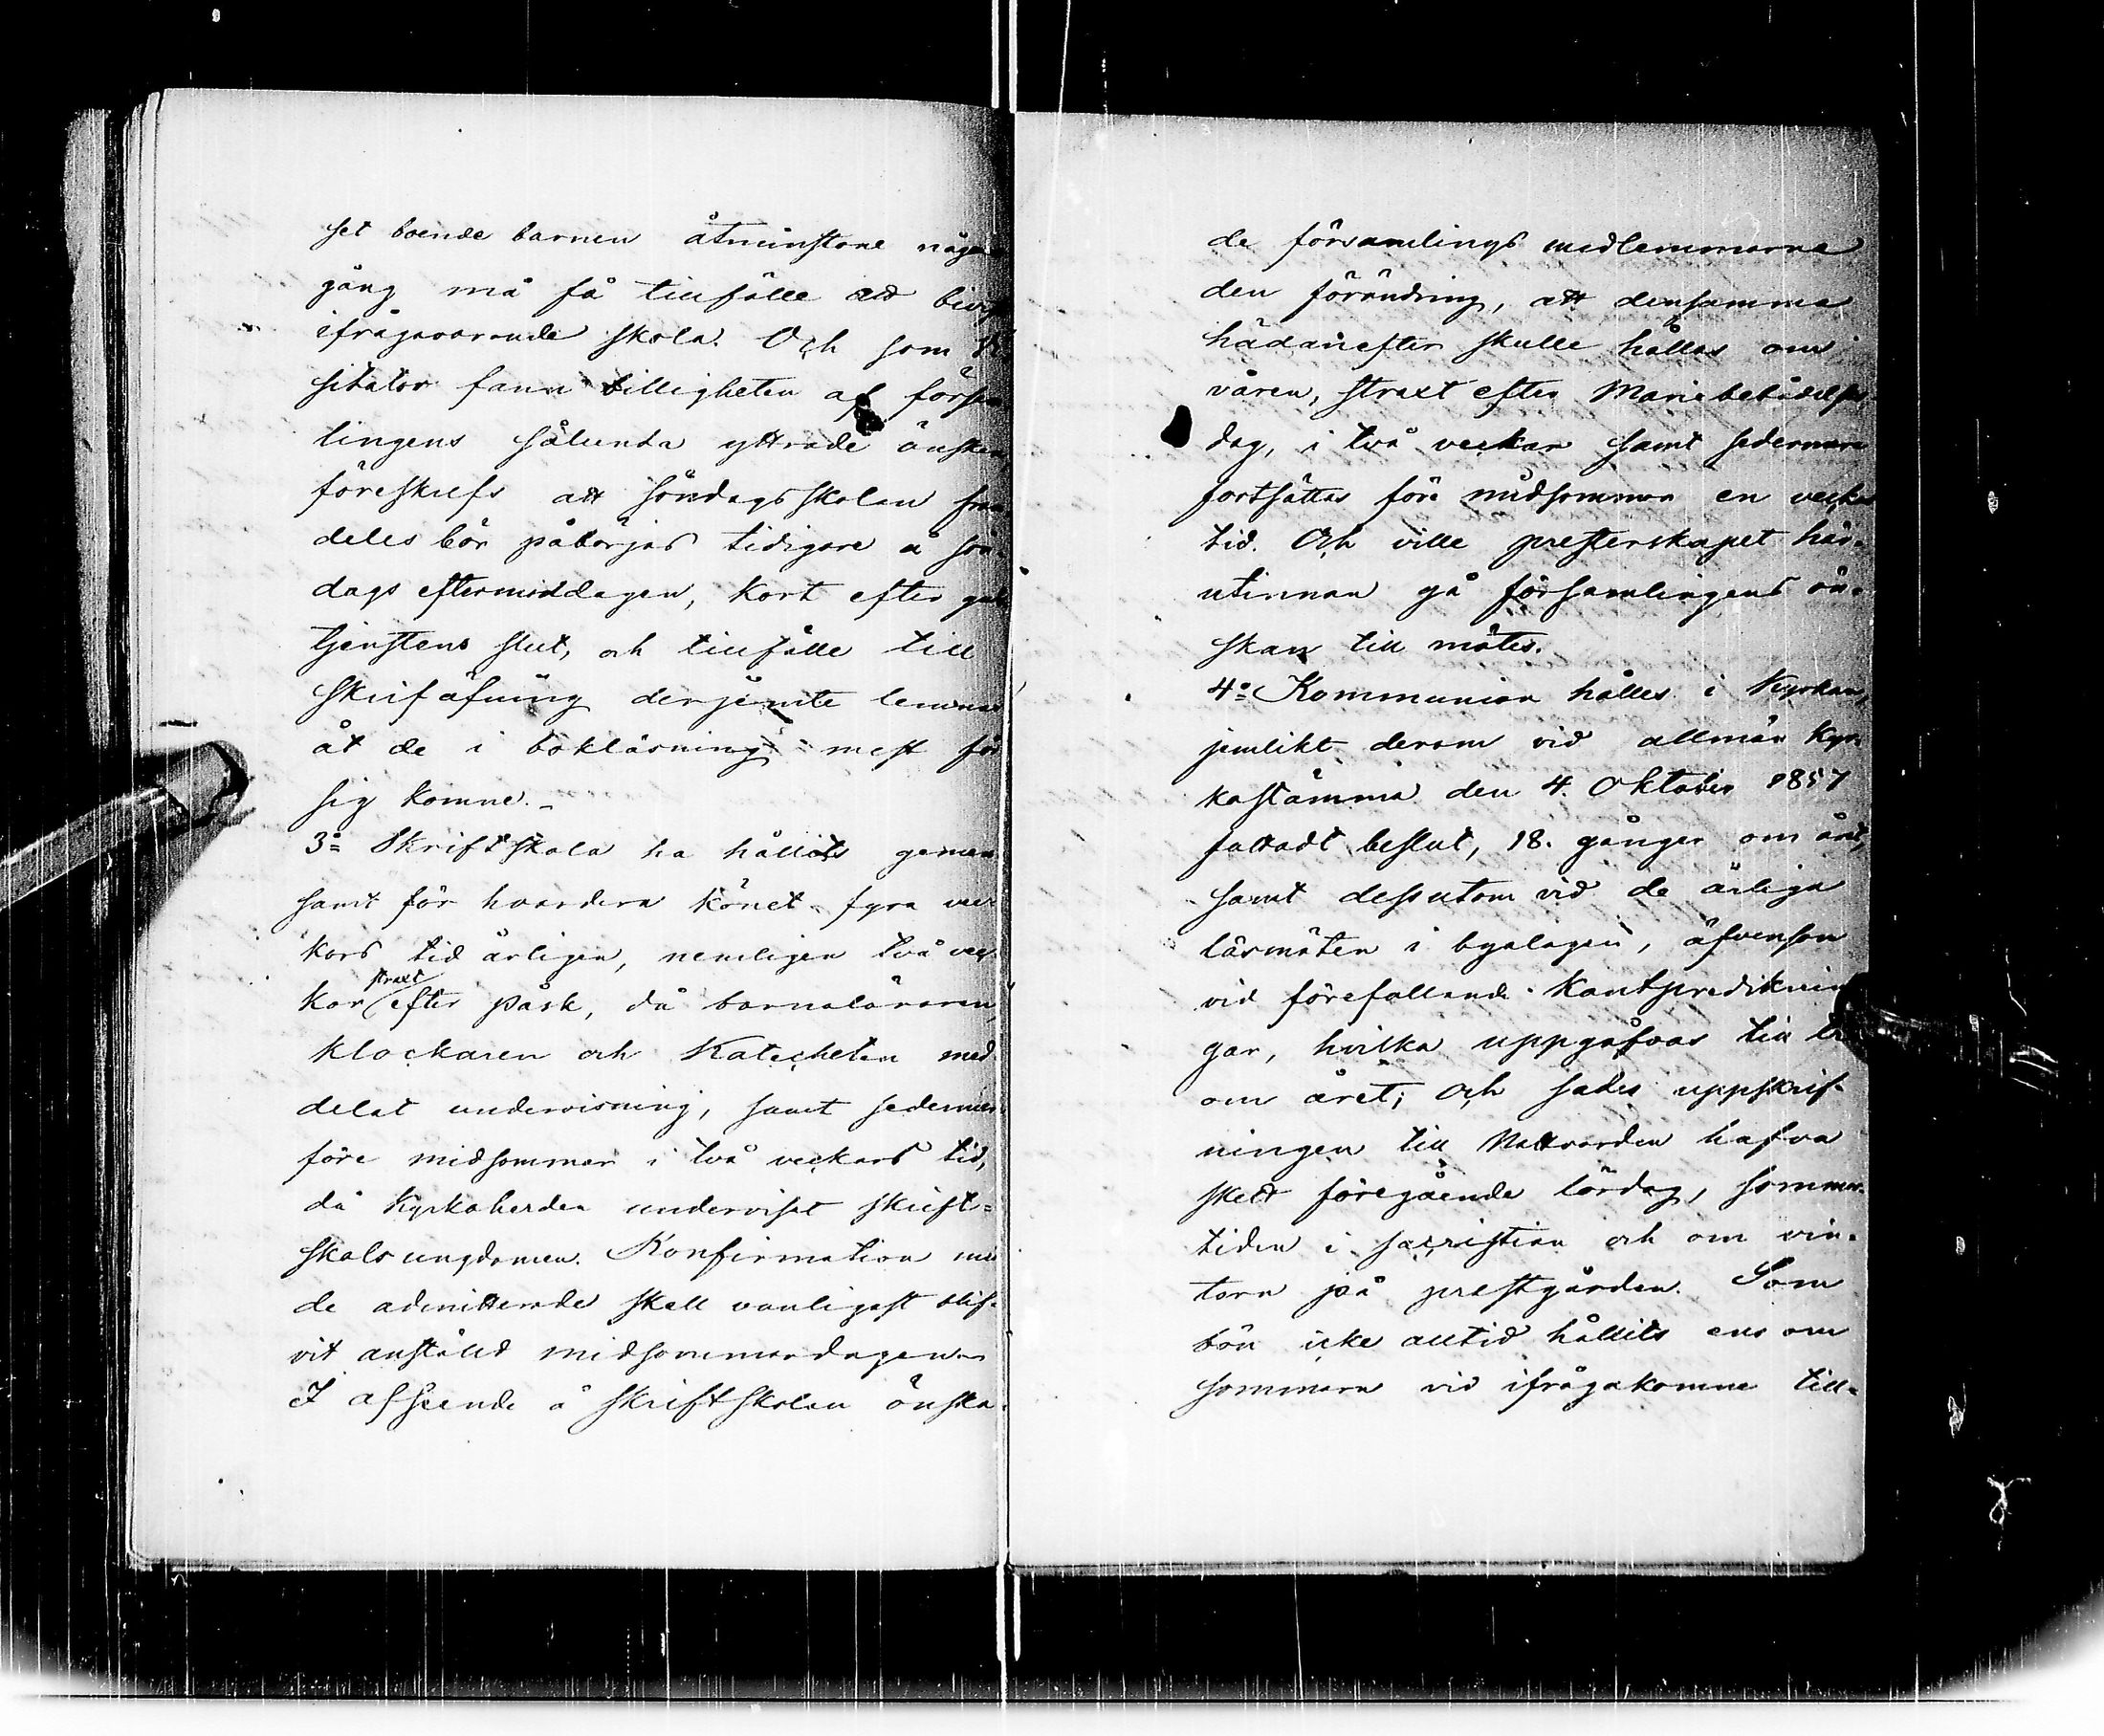 set boende barnen åtminstone någon
gång må få tillfälle att
ifrågavarande skola. Och som Vi
sitator fann billigheten af försam
lingens sålunda yttrade önskan
föreskrefs att söndagsskolan fram
deles bör påbörjas tidigare å sön-
dags eftermiddagen, kort efter gud
tjenstens slut, och tillfälle till
skriföfning derjemte lemnas
åt de i bokläsning mest för
sig komne. –
3:o Skriftskola ha hållits gemen
samt för hvardera könet fyra vec
kors tid årligen, nemligen två vec
kor straxt efter påsk, då barnaläraren,
klockaren och Katecheten med
delat undervisning, samt sedermera
före midsommar i två veckors tid,
då Kyrkoherden undervist skrift=
skols ungdomen. Konfirmation med
de admitterade skall vanligast blif-
vit anställd midsommardagen.
I afseende å skriftskolan önska-
de församlings medlemmarne
den förändring, att densamma
hädanefter skulle hållas om
våren, straxt efter Mariebebådelse
dag, i två veckor samt sedermera
fortsättas före midsommar en veckas
tid. Och ville presterskapet här-
utinnan gå församlingens ön-
skan till mötes.
4:o Kommunion hålles i Kyrkan,
jemlikt derom vid allmän Kyr-
kostämma den 4. Oktober 1857
fattadt beslut, 18. gånger om året,
samt dessutom vid de årliga
läsmöten i byalagen, äfvensom
vid förefallande Kantprediknin
gar, hvilka uppgåfvos till tre
om året; Och sades uppskrif-
ningen till Nattvarden hafva
skett föregående lördag, sommar-
tiden i sacristian och om vin-
tern på prestgården. Som
bön icke alltid hållits ens om
sommarn vid ifrågakomne till-